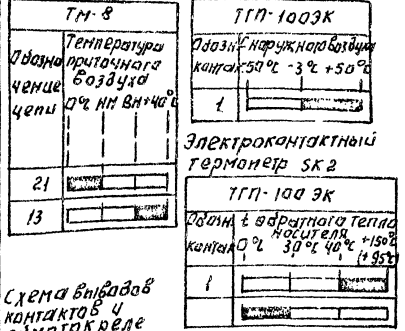 ТМ-8
Обозна-
чение
цепи
Температура
приточного
воздуха
0°С НМ ВН +40°С
21
13
Схема выводов
контактов и
обмоток реле
ТГП-100ЭК
Обозн.
контак
t наружного воздуха
-50°С -3°С +50°С
1
Электроконтактный
термометр SK2
ТГП-100 ЭК
Обозн.
контак
t обратного тепло
носителя
0°С 30°С 40°С +150°С
(+95°С)
1